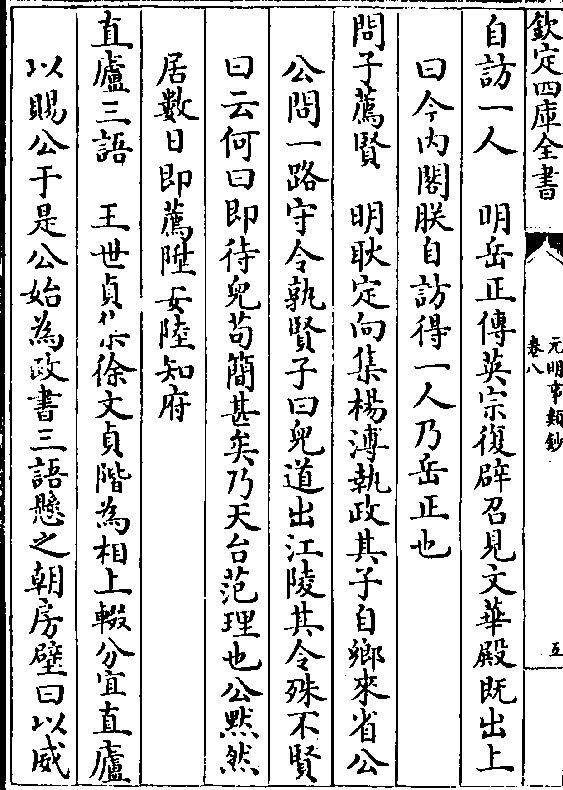 欽定四庫全書
元明事類鈔
卷八
五
自訪一人　明岳正傳英宗復辟召見文華殿既出上
曰今内閣朕自訪得一人乃岳正也
問子薦賢　明耿定向集楊溥執政其子自鄉來省公
公問一路守令孰賢子曰兒道出江陵其令殊不賢
曰云何曰即待兒苟簡甚矣乃天台范理也公黙然
居數日即薦陞安陸知府
直廬三語　王世貞集徐文貞階為相上輟分宜直廬
以賜公于是公始為政書三語懸之朝房壁曰以威